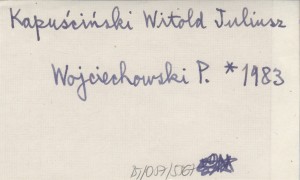 Kapuściński Witold Juliusz
Wojciechowski P. * 1983